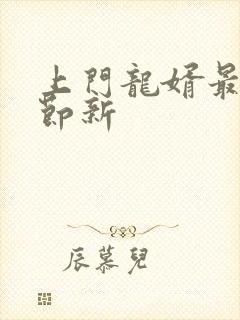 上門龍婿最
節新
辰慕兒